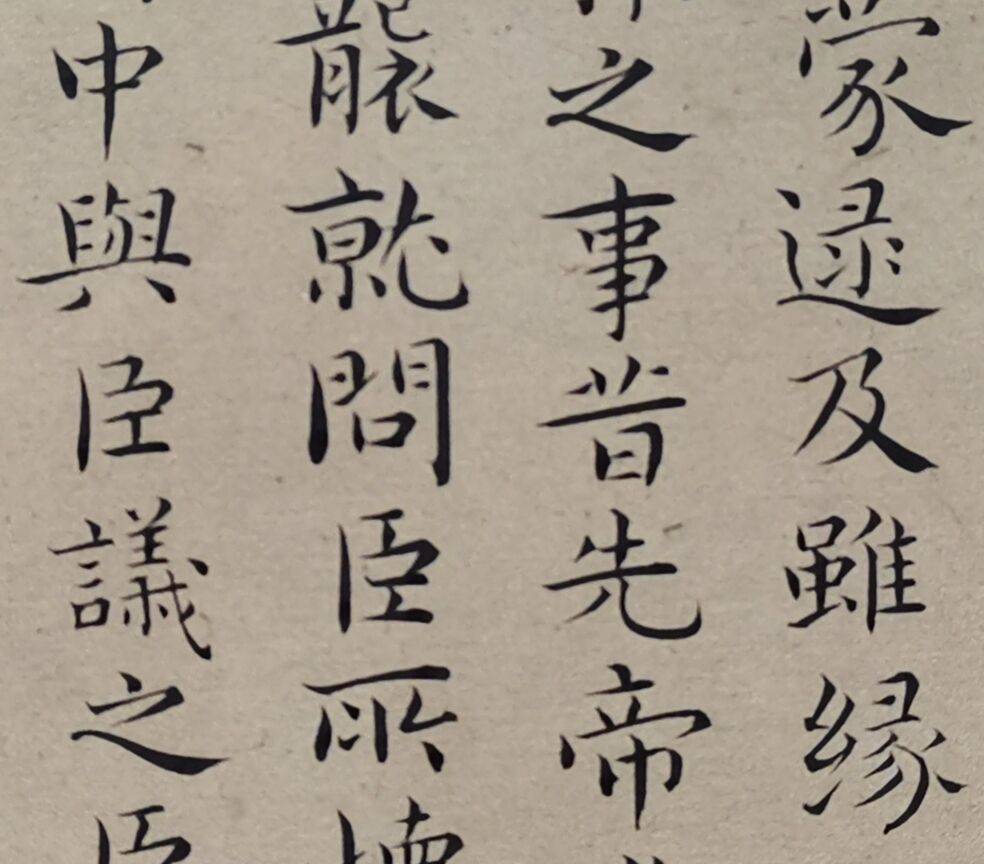 蒙逮及雖緣
之事昔先帝
襲就問臣所
中與臣議之臣